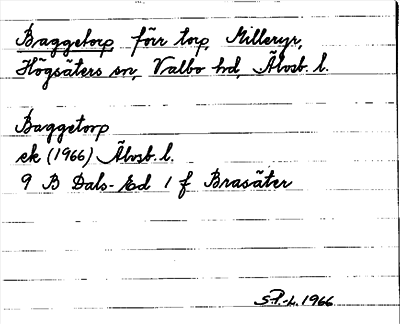 Baggetorp förr torp, Milleryr,
Högsäters sn, Valbo hd, Älvsb. l.
Baggetorp
ek (1966) Älvsb. l.
9 B Dals-Ed 1 f Brasäter
S.P.-L. 1966